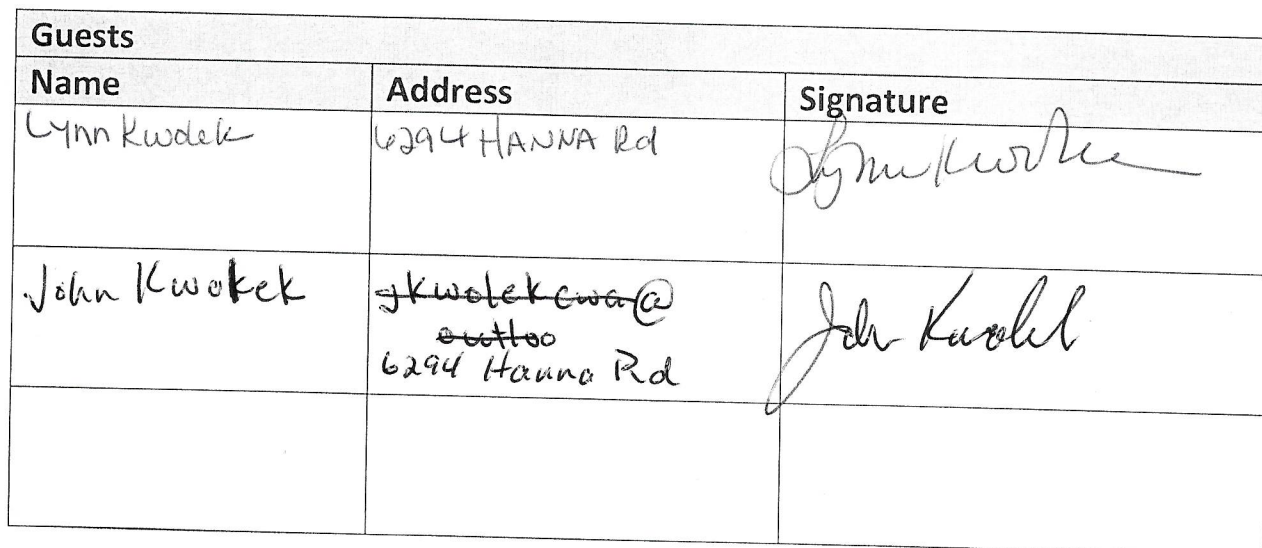 Guests
Name Address Signature
Lynn Kwolek 6294 HANNA Rd Lynn Kwolek
John Kwokek jkwolekcwa@
outloo
6294 Hanna Rd John Kwolek